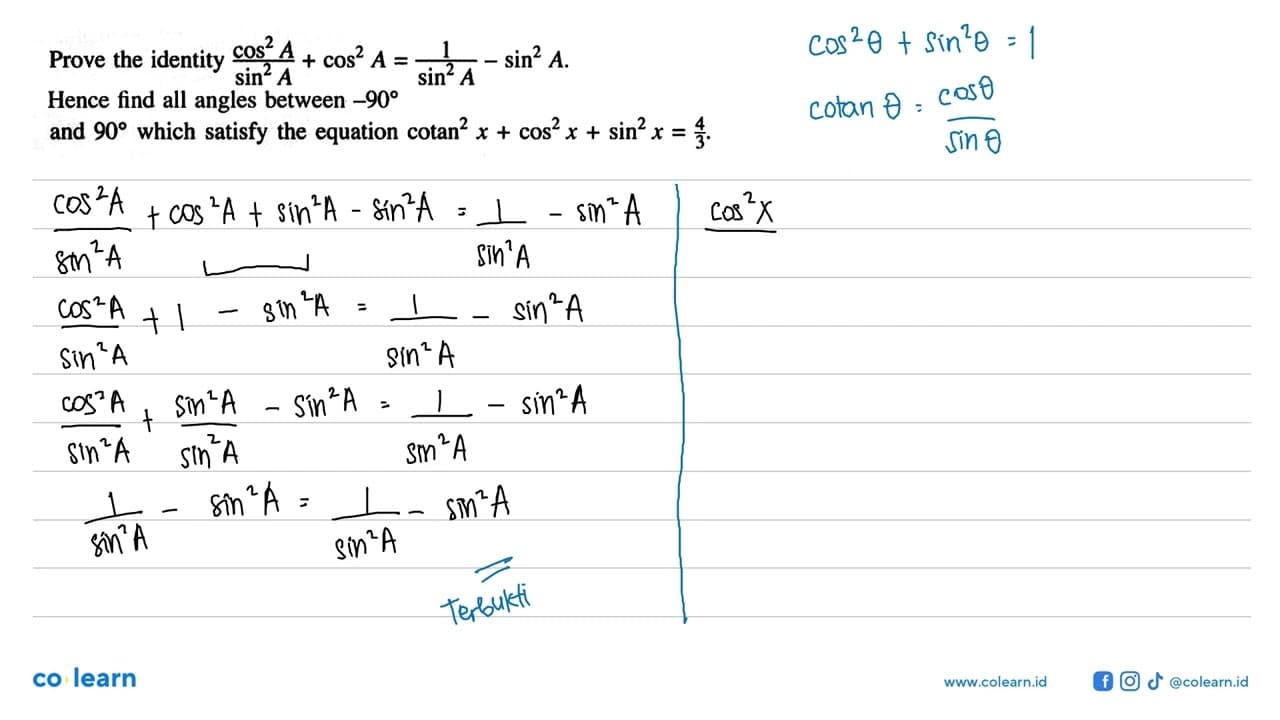 Prove the identity cos² A / sin² A + cos² A = 1 / sin² A − sin² A.
Hence find all angles between –90°
and 90° which satisfy the equation cotan² x + cos² x + sin² x = 4/3.
cos²θ + sin²θ = 1
cotan θ = cosθ / sin θ
cos²A / sin²A + cos²A + sin²A - sin²A = 1 / sin²A - sin²A
cos²A / sin²A + 1 - sin²A = 1 / sin²A - sin²A
cos²A / sin²A + sin²A / sin²A - sin²A = 1 / sin²A - sin²A
1 / sin²A - sin²A = 1 / sin²A - sin²A
Terbukti
cos²x
co learn
www.colearn.id
@colearn.id